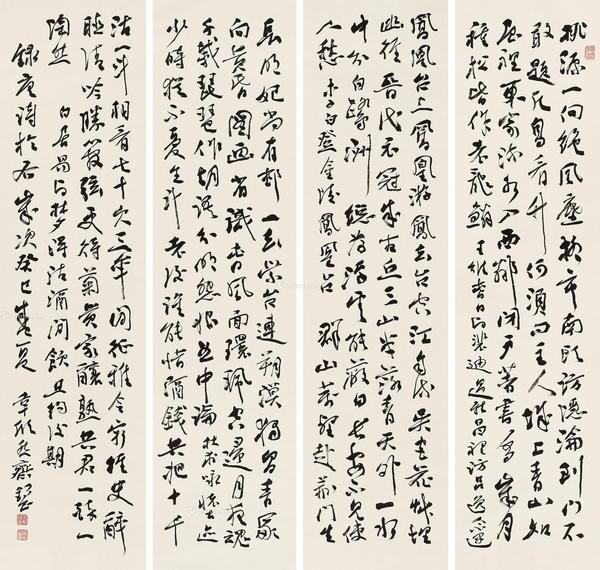 桃源一向絕風塵柳市南頭訪隱淪到門不
敢題凡鳥看竹何須問主人城上青山如
屋裡東家流水入西鄰閉戶著書多歲月
種松皆作老龍鱗 王維春日與裴迪過新昌裡訪呂逸人不遇
鳳凰台上鳳凰游鳳去台空江自流吴宮花草埋
幽徑晉代衣冠成古丘三山半落青天外一水
中分白鷺洲總為浮雲能蔽日長安不見使
人愁 李白登金陵鳳凰台 群山萬壑赴荊門生
長明妃尚有村一去紫台連朔漠獨留青冢
向黃昏圖画省識春風面環珮空歸月夜魂
千載琵琶作胡語分明怨恨曲中論 杜甫詠懷古迹
少時猶不憂生計老後誰能惜酒錢共把十千
沽一斗相看七十欠三年閒徵雅令窮經史醉
聽清吟勝管弦更待菊黃家醞熟共君一醉一
陶然 白居易與夢得沽酒閒飲且約後期
錄唐詩 歲次癸巳春夏